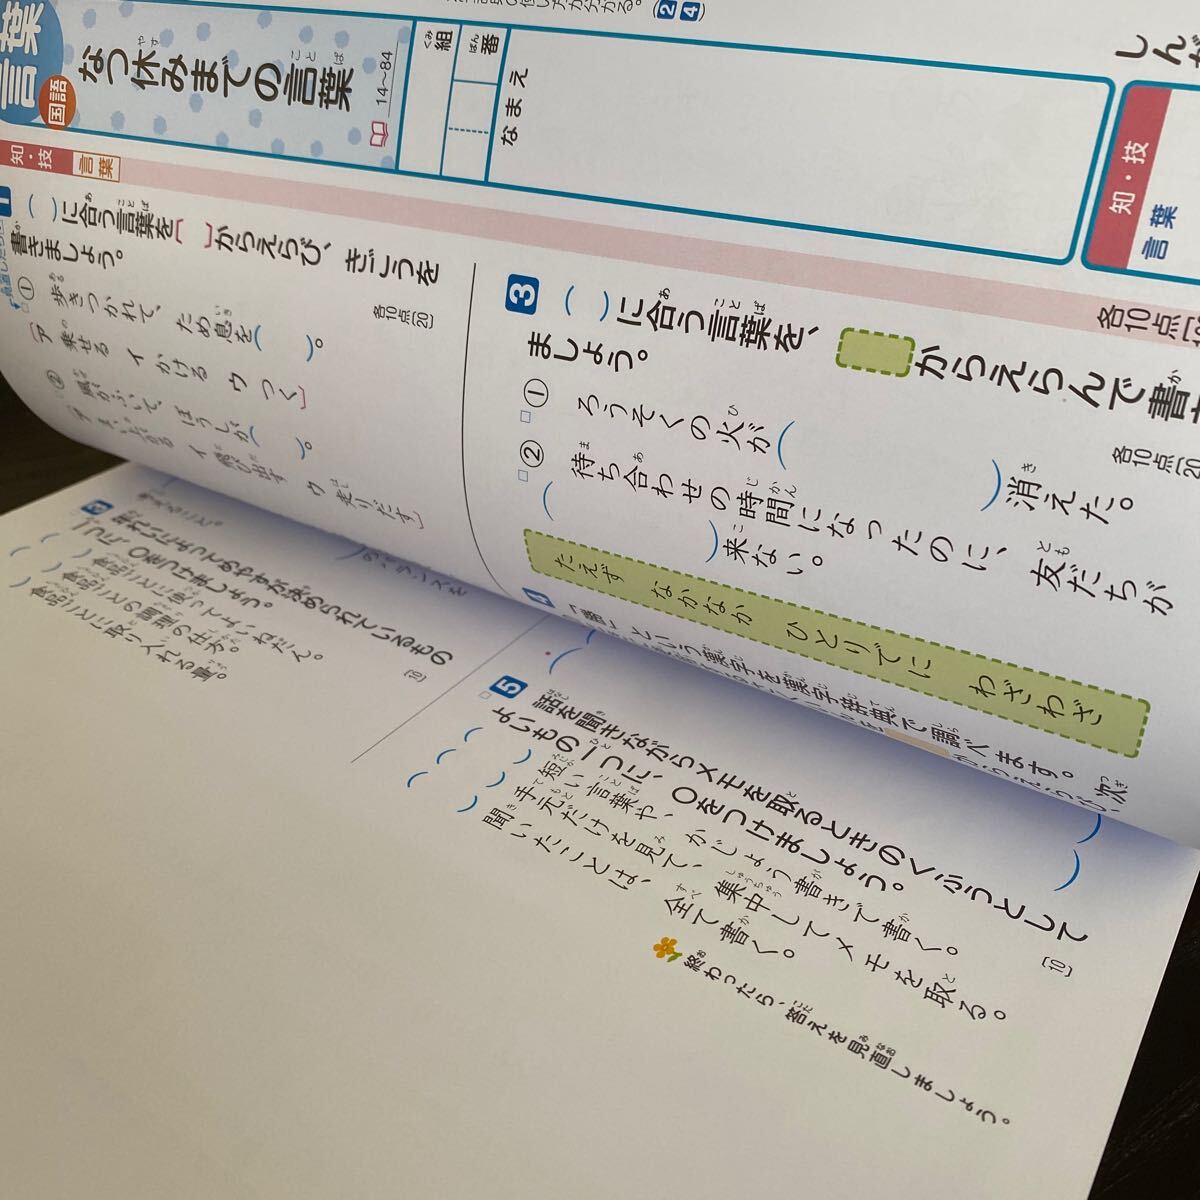 言葉
国語
なつ休みまでの言葉
14〜84
組
番
なまえ
知・技
言葉
1
( )に合う言葉を[ ]からえらび、きごうを
書きましょう。
各10点[20]
① 歩きつかれて、ため息を( )。
[ア 乗せる イ かける ウ つく]
② 風がふいて、ぼうしが( )。
イ 飛び出す ウ 走りだす]
3
( )に合う言葉を、 からえらんで書
ましょう。
各10点[20
① ろうそくの火が( )消えた。
② 待ち合わせの時間になったのに、友だちが
( )来ない。
たえず なかなか ひとりでに わざわざ
4
という漢字を漢字辞典で調べます。次
知・技
言葉
各10点
のバランスを
考えること。
3
一つに、○をつけましょう。
[10]
食品ごとに使ってよいねだん。
食品ごとの調理の仕方。
食品ごとに取り入れる量。
5
話を聞きながらメモを取るときのくふうとして
よいもの一つに、○をつけましょう。
[10]
短い言葉や、かじょう書きで書く。
手元だけを見て、集中してメモを取る。
聞いたことは、全て書く。
終わったら、答えを見直しましょう。